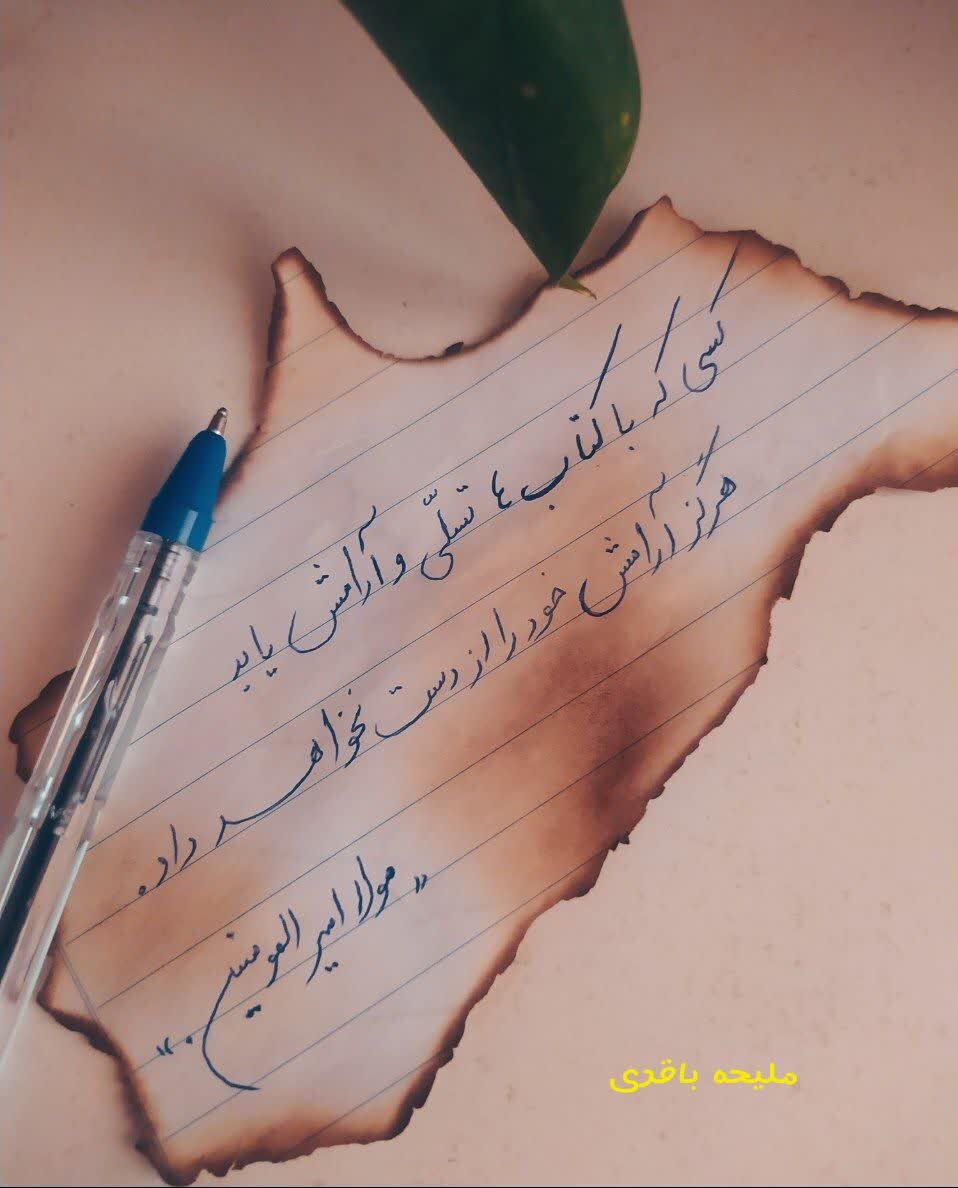 کسی که با کتاب ها تسلّی و آرامش یابد
هرگز آرامش خود را از دست نخواهد داد.
"مولا امیر المومنین"
ملیحه باقدی